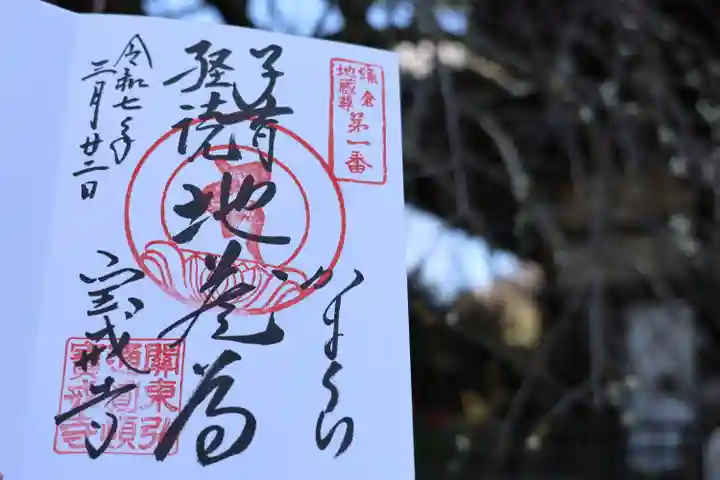 鎌倉
地蔵尊
第一番
子育
経読
地蔵尊
かまくら
令和七年
三月廿二日
宝戒寺
關東弘
通圓頓
寶戒寺